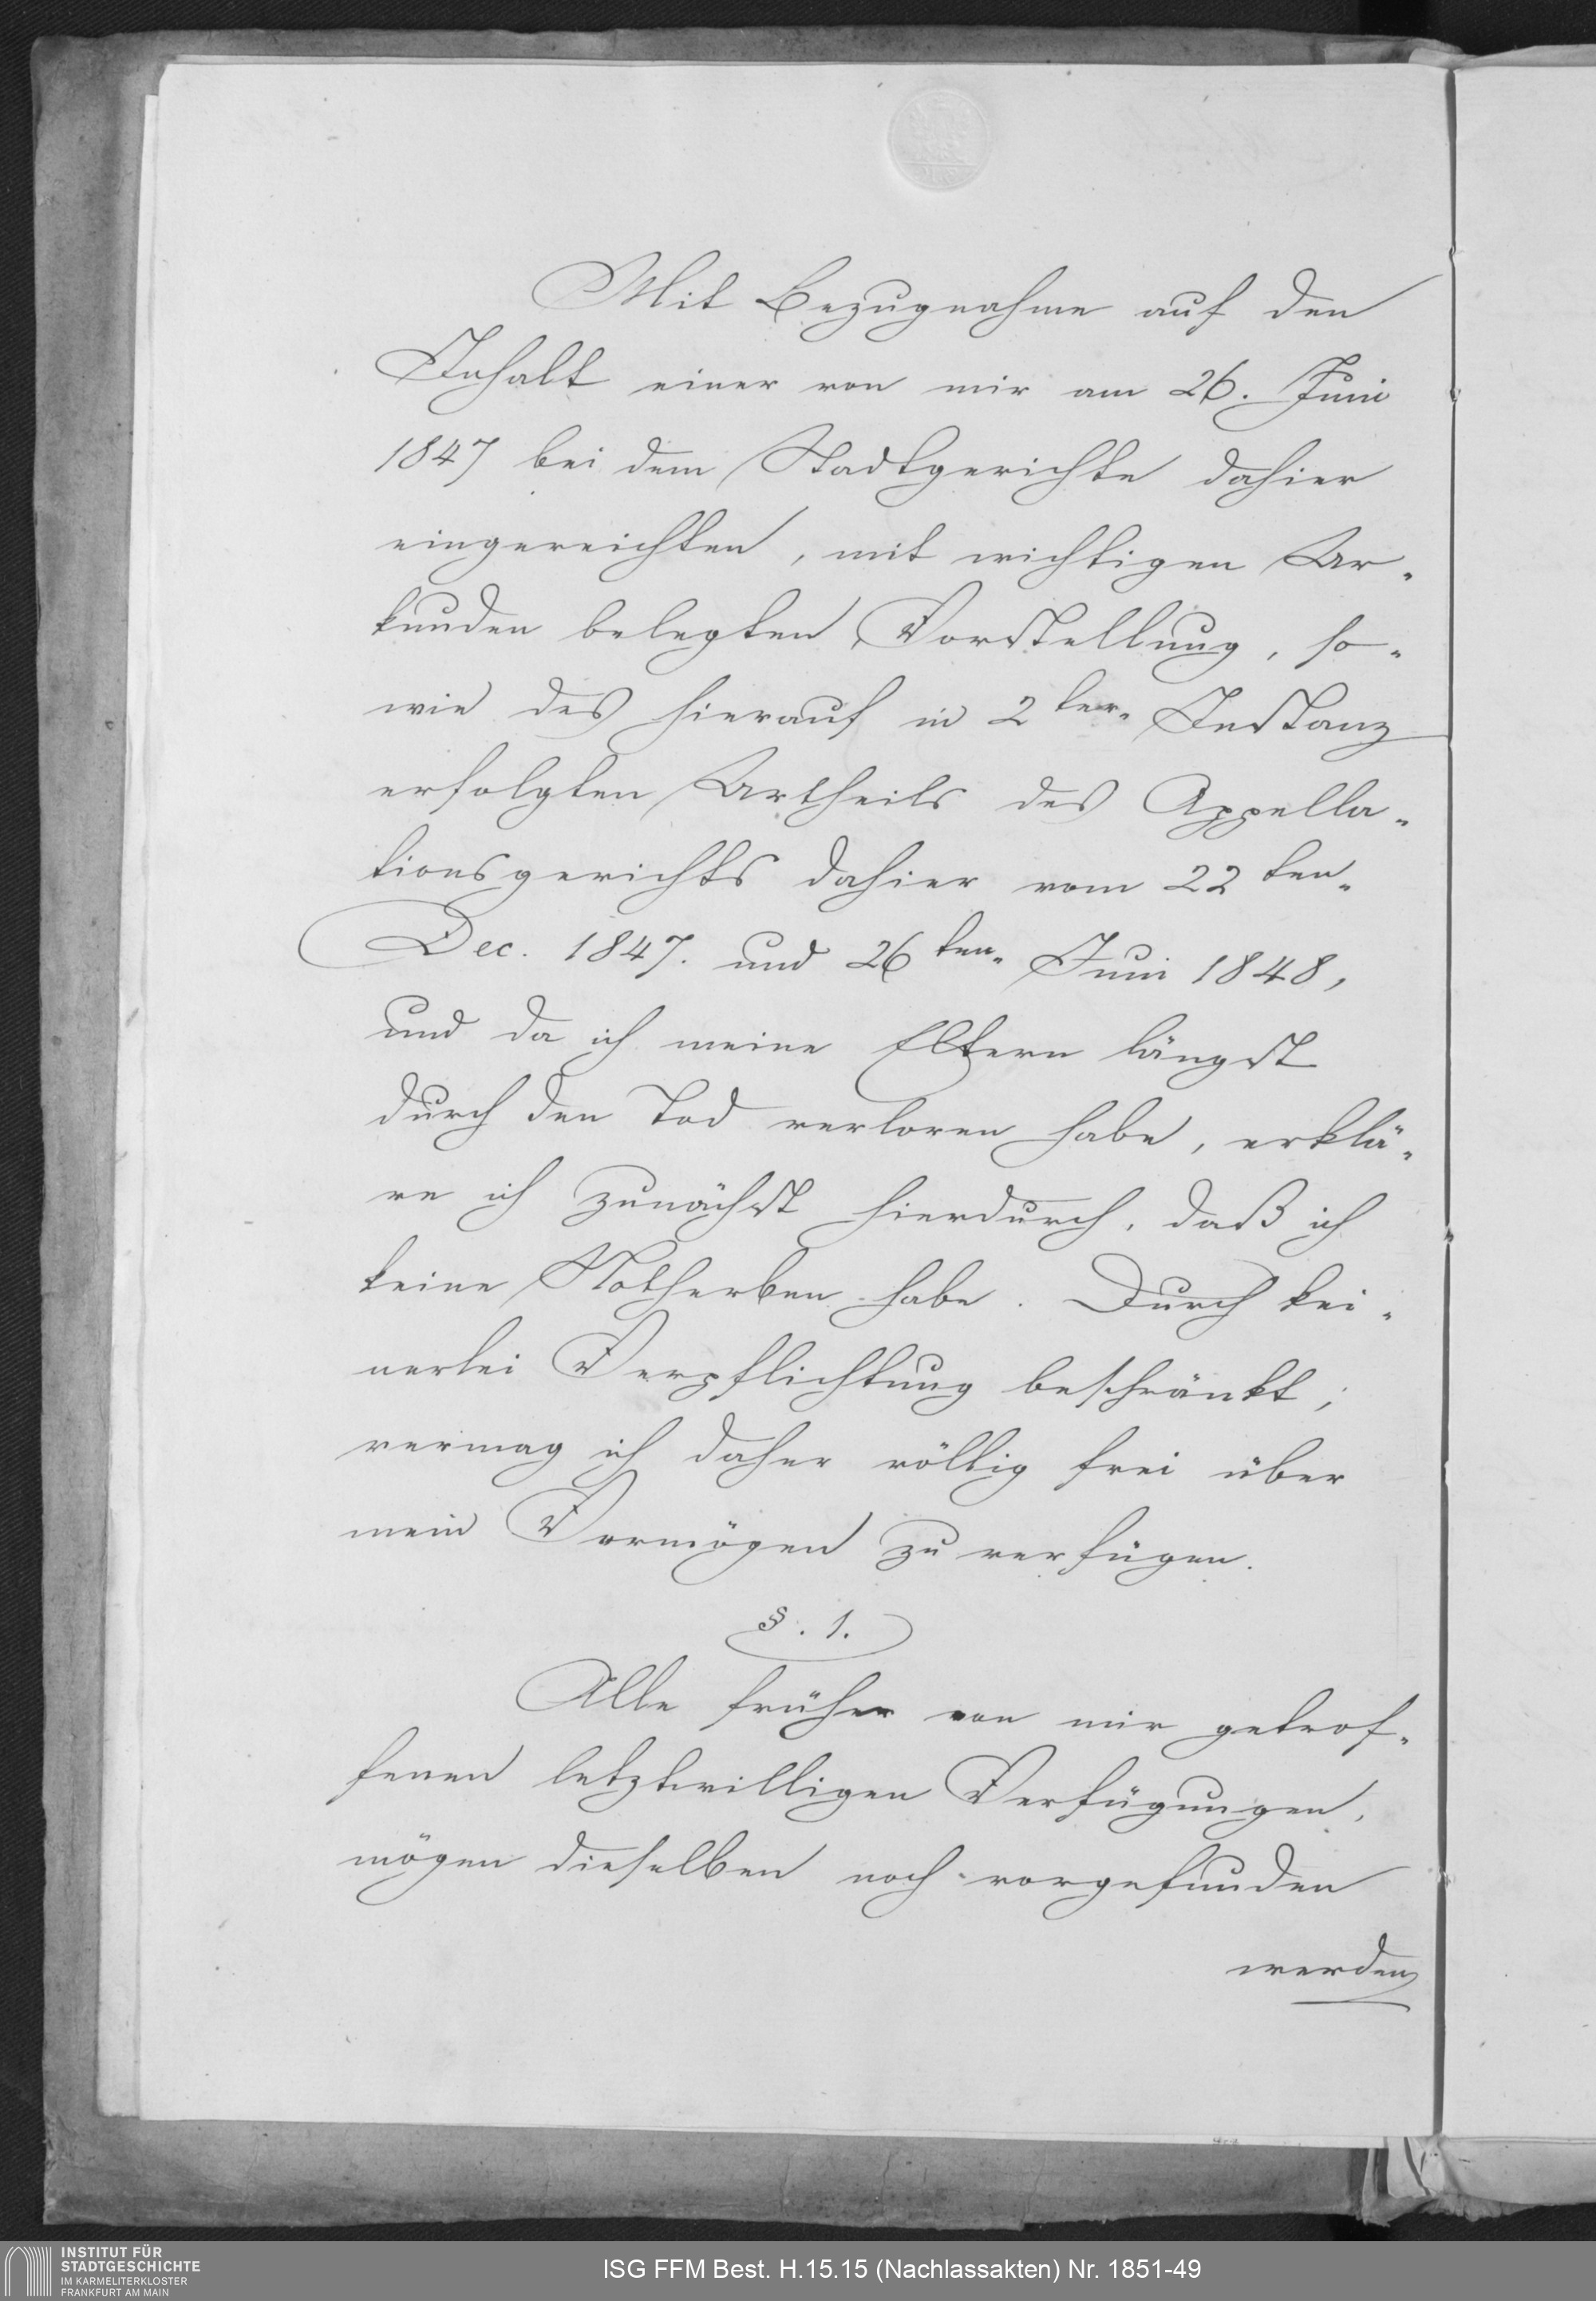 Mit Bezugnahme auf den
Inhalt einer von mir am 26. Juni
1847 bei dem Stadtgerichte dahier
eingereichten, mit wichtigen Ur-
kunden belegten Vorstellung, so-
wie des hierauf in 2ter Instanz
erfolgten Urtheils des Appella-
tionsgerichts dahier vom 22ten
Dec. 1847. und 26ten Juni 1848,
und da ich meine Eltern längst
durch den Tod verloren habe, erklä-
re ich zunächst hierdurch, daß ich
keine Notherben habe. Durch kei-
nerlei Verpflichtung beschränkt,
vermag ich daher völlig frei über
mein Vermögen zu verfügen.
§. 1.
Alle früher von mir getrof-
fenen letztwilligen Verfügungen,
mögen dieselben noch vorgefunden
werden
INSTITUT FÜR
STADTGESCHICHTE
IM KARMELITERKLOSTER
FRANKFURT AM MAIN
ISG FFM Best. H.15.15 (Nachlassakten) Nr. 1851-49